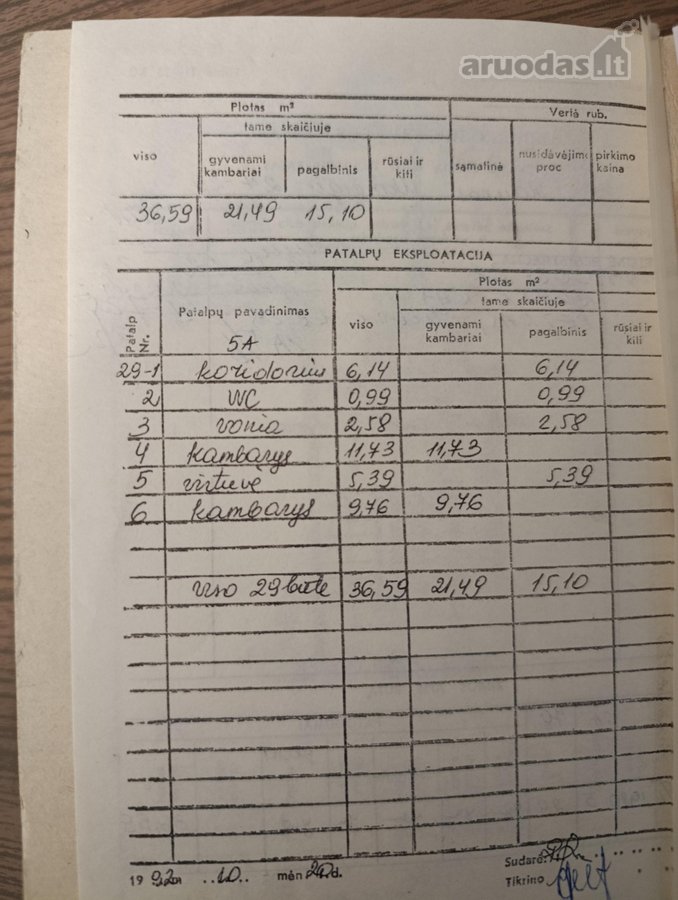 aruodas.lt
Plotas m² Vertė rub.
viso tame skaičiuje sąmatinė nusidėvėjimo proc pirkimo kaina
gyvenami kambariai pagalbinis rūsiai ir kiti
36,59 21,49 15,10
PATALPŲ EKSPLOATACIJA
Patalp Nr. Patalpų pavadinimas Plotas m²
viso tame skaičiuje
gyvenami kambariai pagalbinis rūsiai ir kiti
5A
29-1 koridorius 6,14 6,14
2 WC 0,99 0,99
3 vonia 2,58 2,58
4 kambarys 11,73 11,73
5 virtuvė 5,39 5,39
6 kambarys 9,76 9,76
viso 29 bute 36,59 21,49 15,10
19 92 10 mėn 20 d.
Sudarė
Tikrino